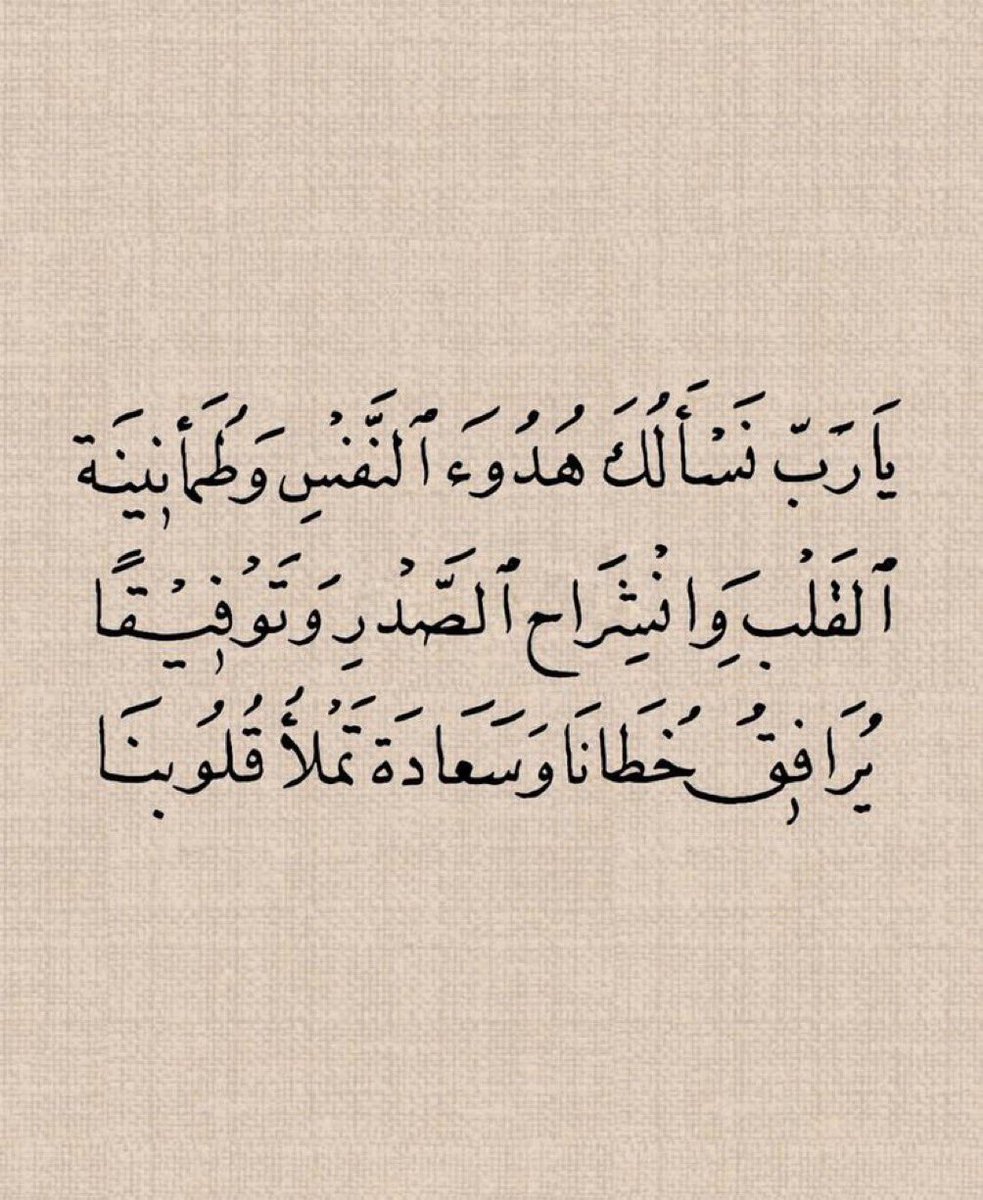 يَا رَبّ نَسْأَلُكَ هُدُوءَ ٱلنَّفْسِ وَطُمَأنِينَة
ٱلقَلْبِ وَانْشِرَاح ٱلصَّدْرِ وَتَوْفِيْقًا
يُرَافِقُ خُطَانَا وَسَعَادَة تَمْلأُ قُلُوبنَا